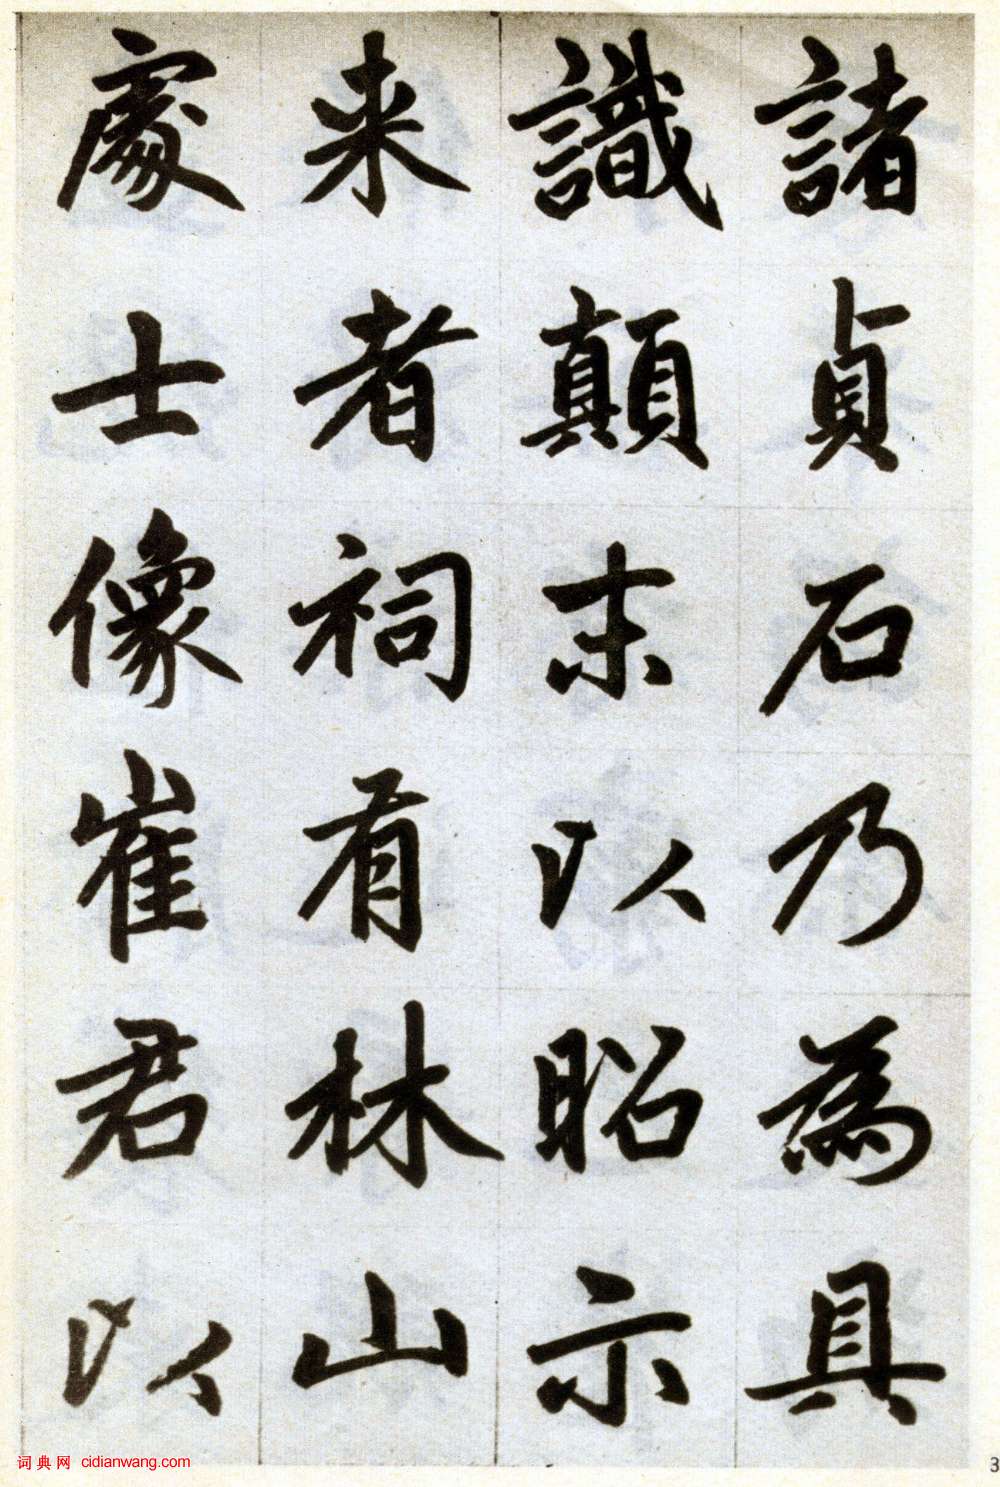 諸貞石乃為具
識顛末以昭示
来者祠有林山
處士像崔君以
词典网 cidianwang.com
3